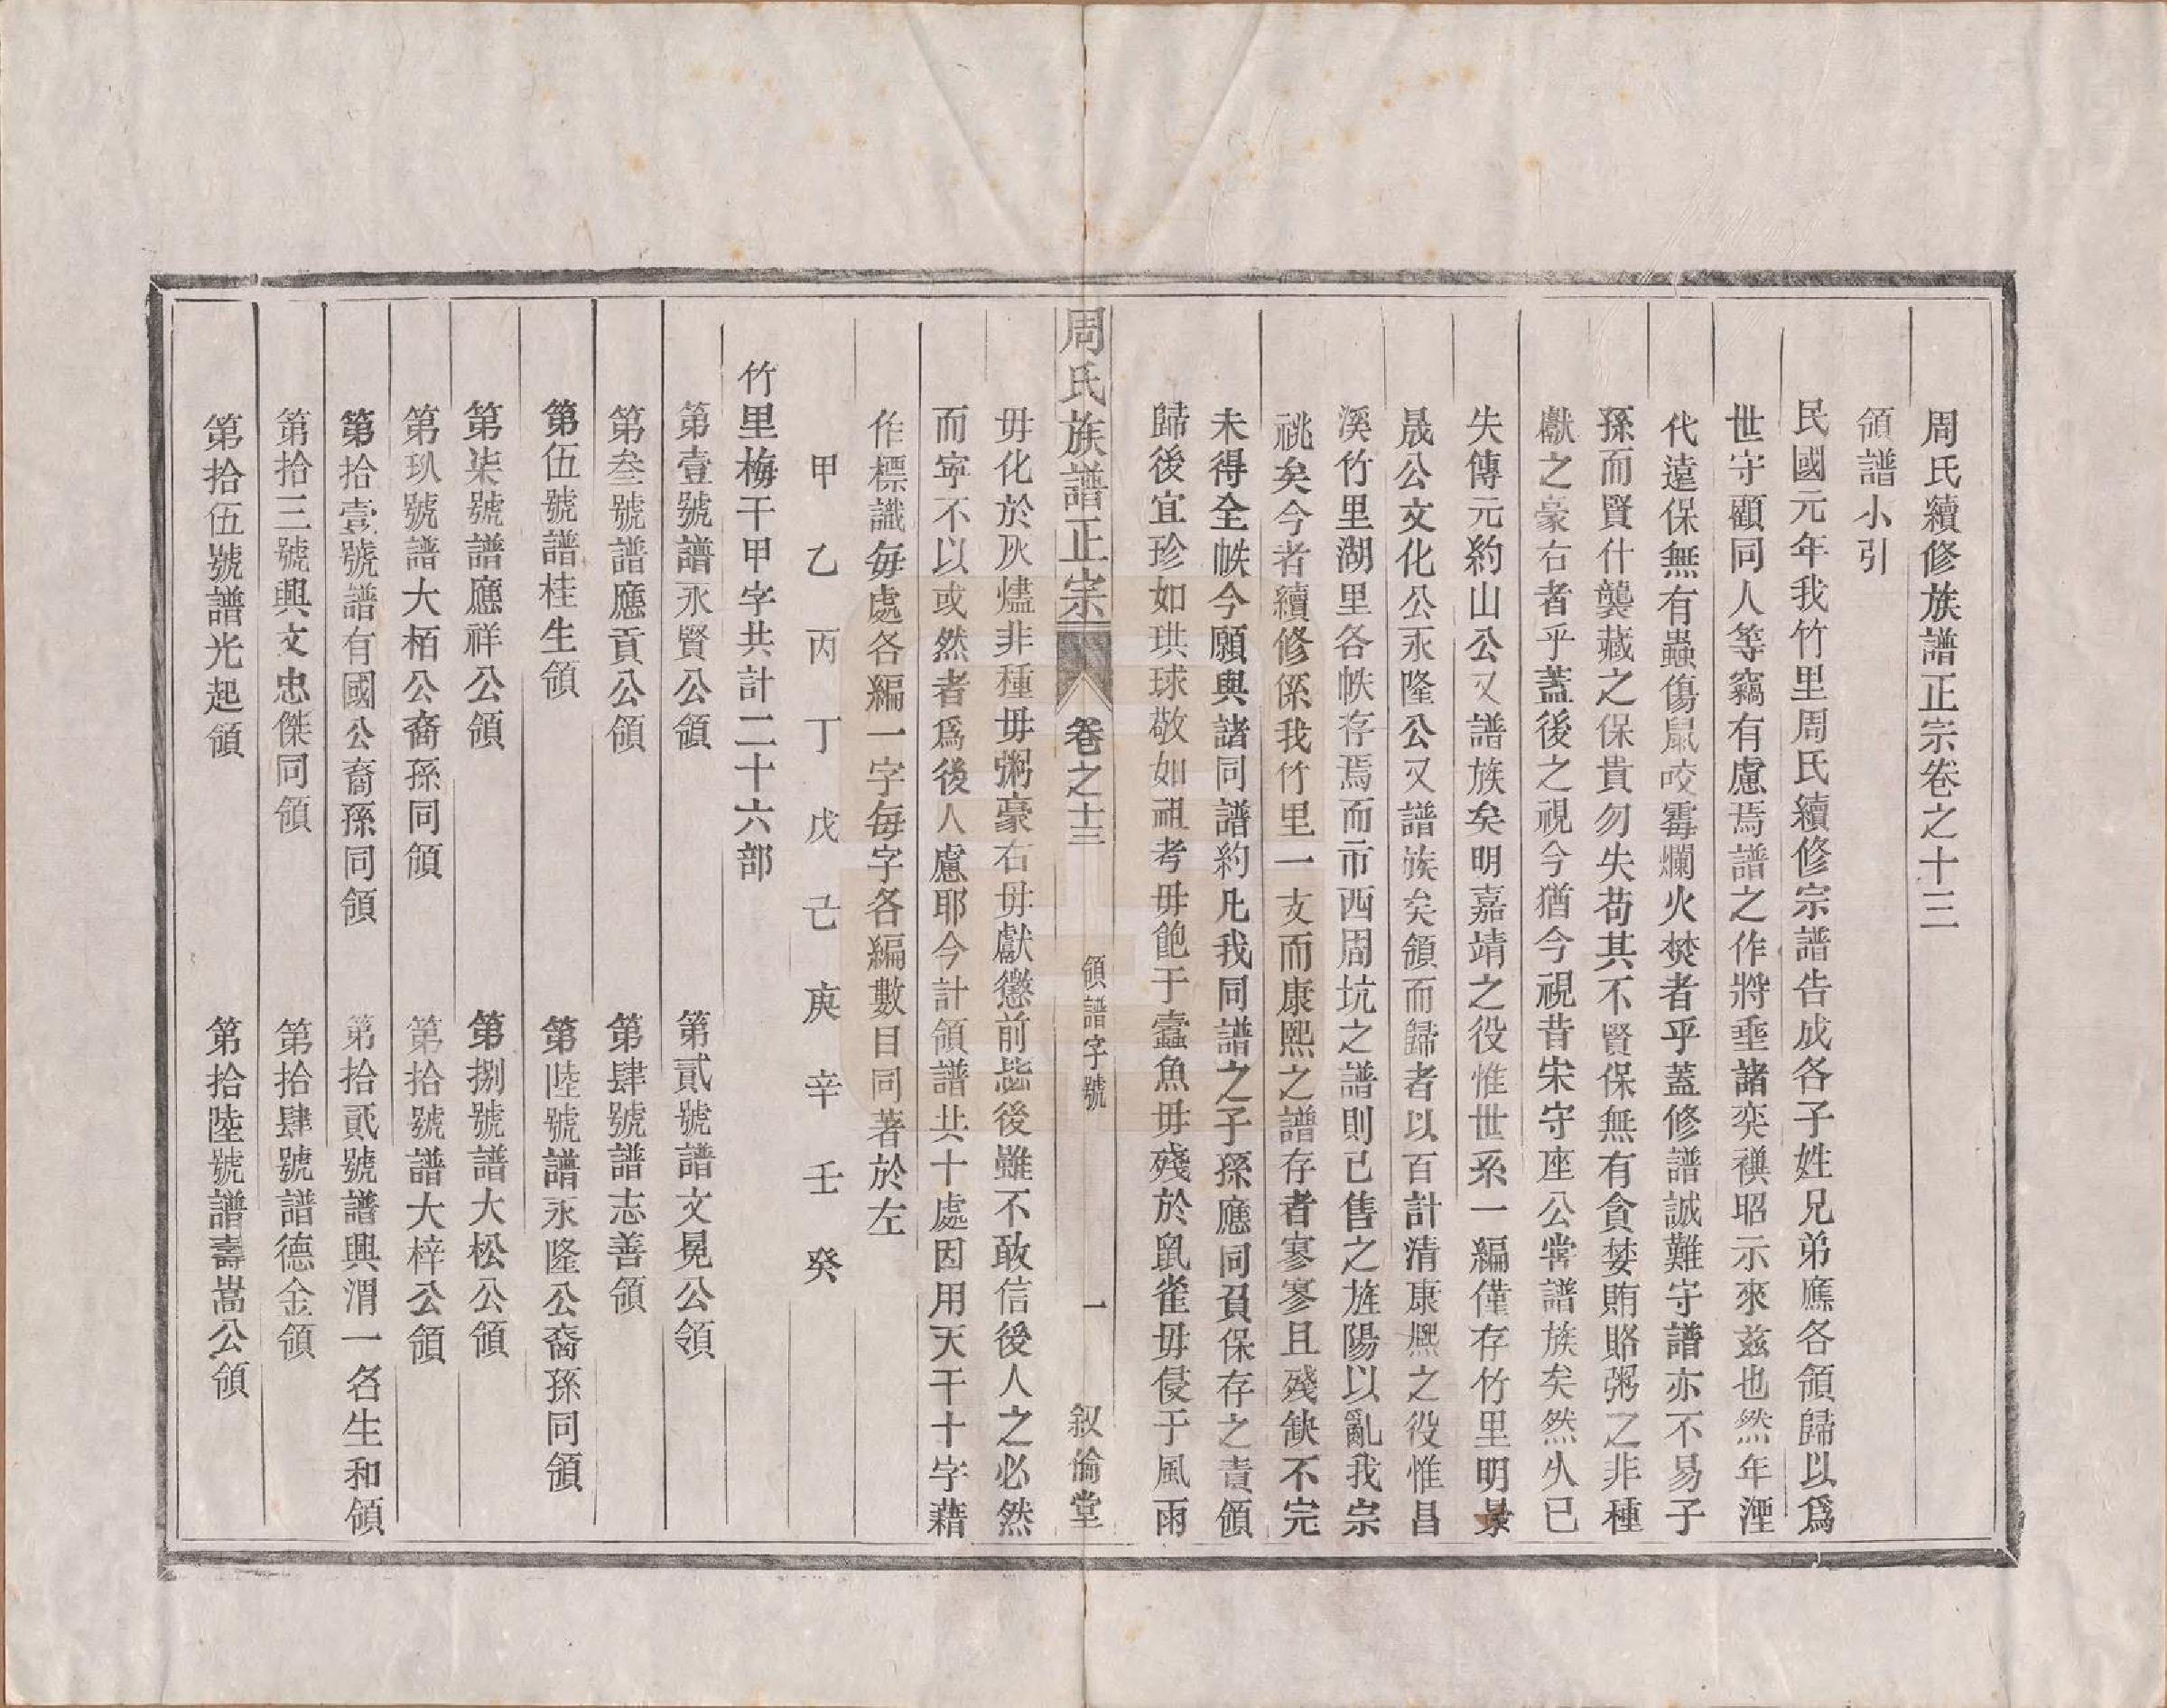 周氏續修族譜正宗卷之十三
領譜小引
民國元年我竹里周氏續修宗譜告成各子姓兄弟應各領歸以爲
世守顧同人等竊有慮焉譜之作將垂諸奕禩昭示來兹也然年湮
代遠保無有蟲傷鼠咬霉爛火焚者乎蓋修譜誠難守譜亦不易子
孫而賢什襲藏之保貴勿失苟其不賢保無有貪婪賄賂粥之非種
獻之豪右者乎蓋後之視今猶今視昔宋守座公嘗譜族矣然久已
失傳元約山公又譜族矣明嘉靖之役惟世系一編僅存竹里明景
晟公文化公永隆公又譜族矣領而歸者以百計清康熙之役惟昌
溪竹里湖里各帙存焉而市西周坑之譜則已售之旌陽以亂我宗
祧矣今者續修係我竹里一支而康熙之譜存者寥寥且殘缺不完
未得全帙今願與諸同譜約凡我同譜之子孫應同負保存之責領
歸後宜珍如珙球敬如祖考毋飽于蠹魚毋殘於鼠雀毋侵于風雨
周氏族譜正宗 卷之十三 領譜字號 一 叙倫堂
毋化於灰燼非種毋粥豪右毋獻懲前毖後雖不敢信後人之必然
而寧不以或然者爲後人慮耶今計領譜共十處因用天干十字藉
作標識每處各編一字每字各編數目同著於左
甲 乙 丙 丁 戊 己 庚 辛 壬 癸
竹里梅干甲字共計二十六部
第壹號譜永賢公領 第貳號譜文晃公領
第叁號譜應貢公領 第肆號譜志善領
第伍號譜桂生領 第陸號譜永隆公裔孫同領
第柒號譜應祥公領 第捌號譜大松公領
第玖號譜大栢公裔孫同領 第拾號譜大梓公領
第拾壹號譜有國公裔孫同領 第拾貳號譜興渭一名生和領
第拾三號興文忠傑同領 第拾肆號譜德金領
第拾伍號譜光起領 第拾陸號譜壽嵩公領